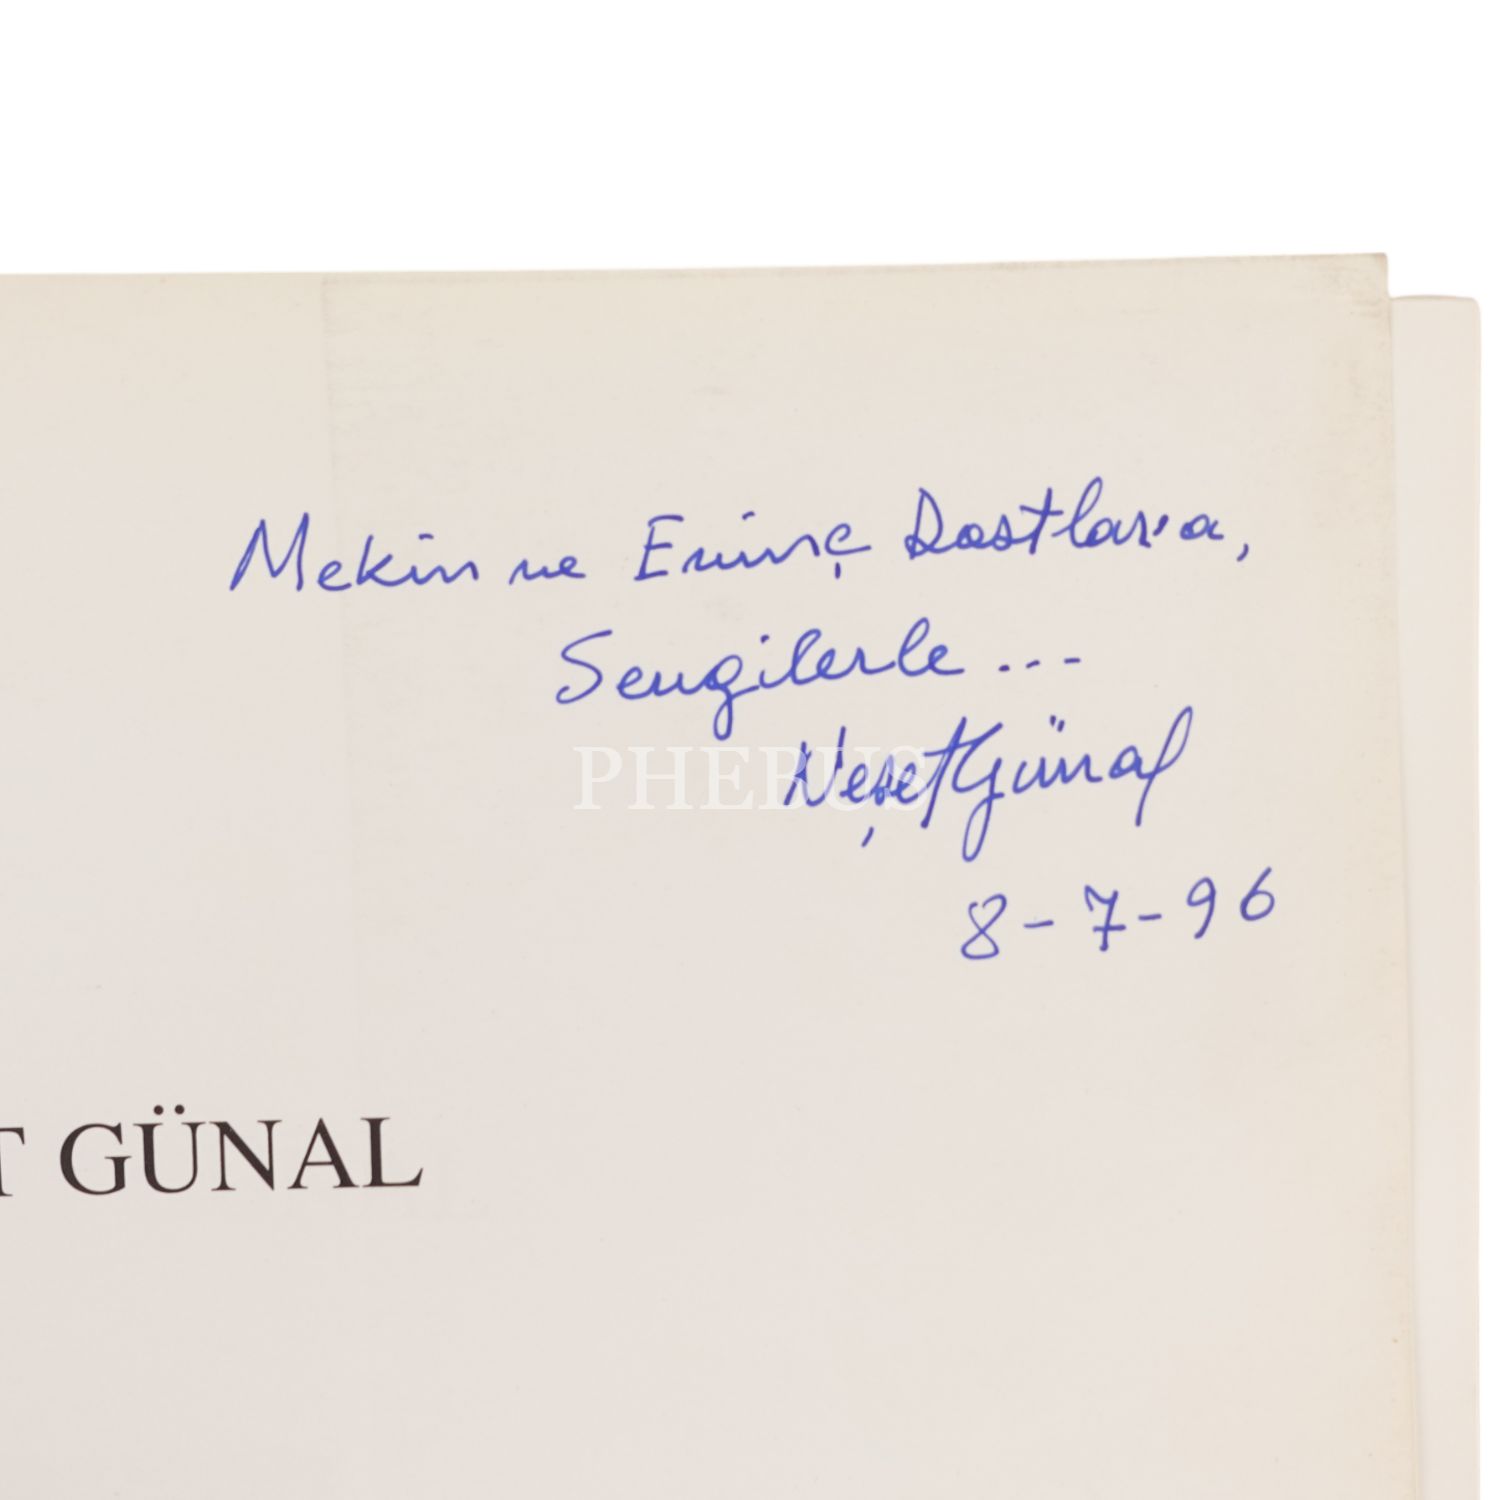 Mekin ve Erinç Dostlara,
Sevgilerle ...
Neşet Günal
PHEBUS
8-7-96
T GÜNAL